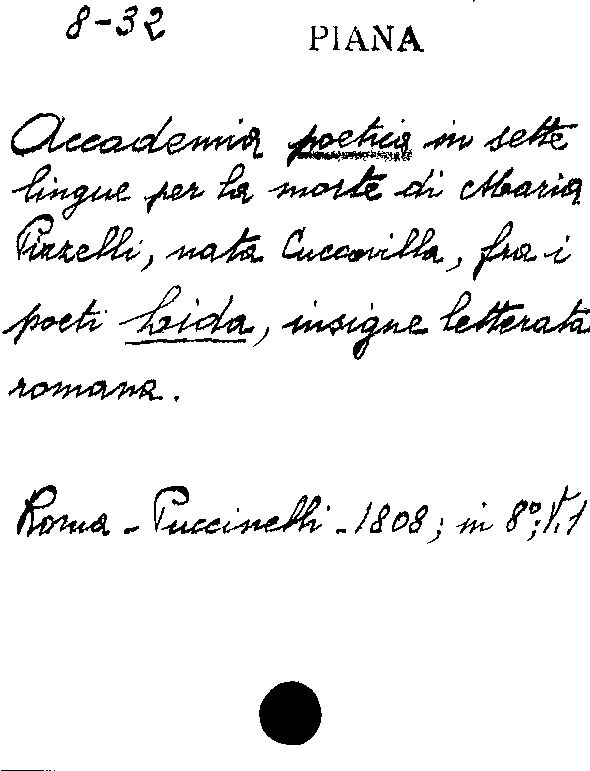 8-32
PIANA
Accademia poetica in sette
lingue per la morte di Maria
Pizzelli, nata Cuccovilla, fra i
poeti Lida, insigne letterata
romana.
Roma - Puccinelli - 1808; in 8°; V. 1